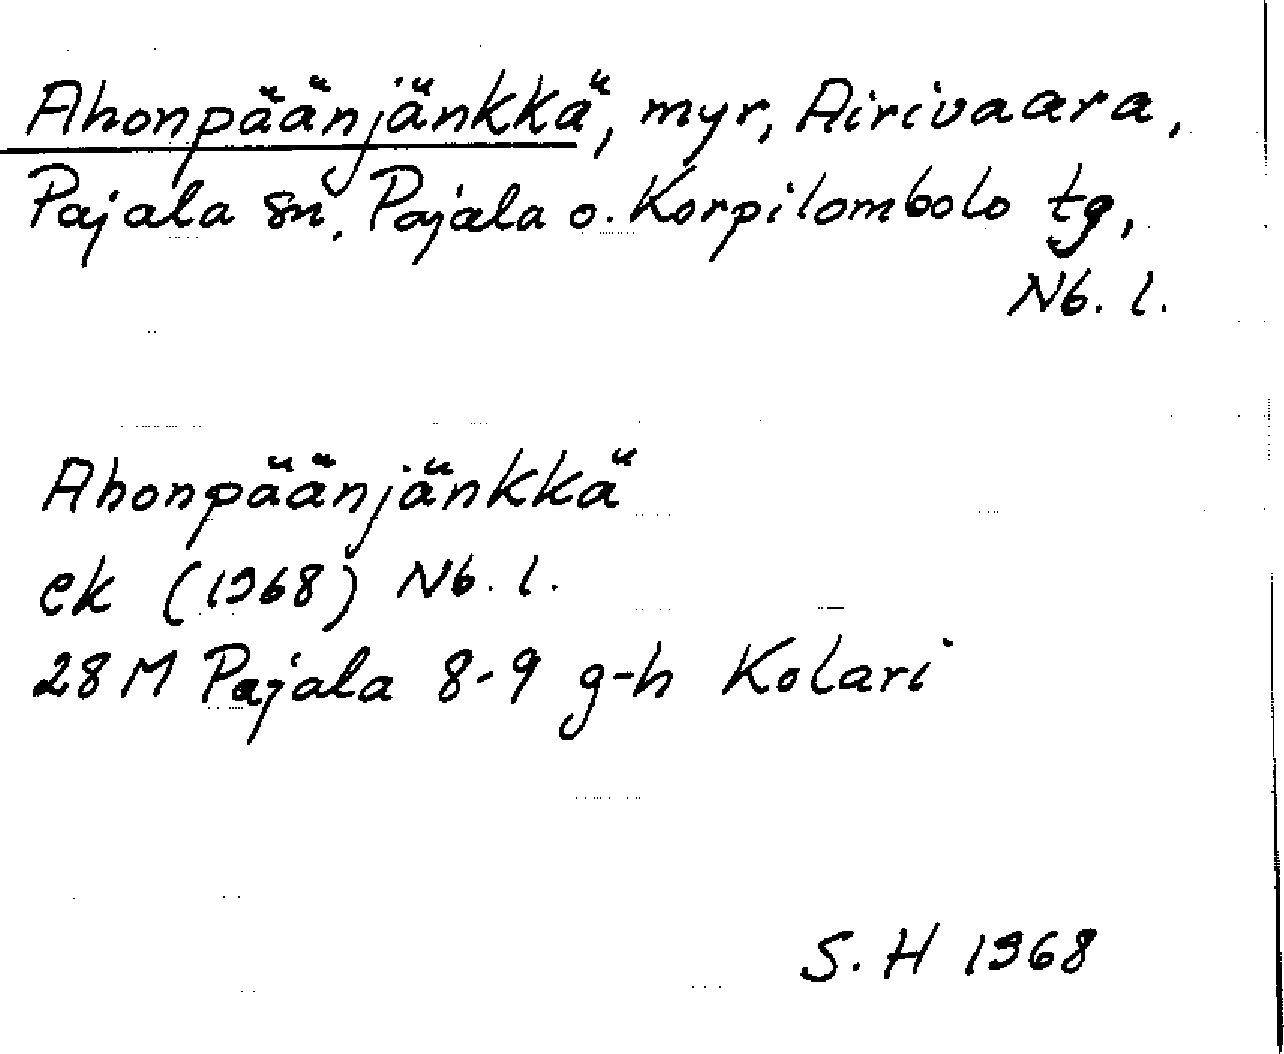 Ahonpäänjänkkä, myr, Airivaara,
Pajala sn, Pajala o. Korpilombolo tg,
Nb. l.
Ahonpäänjänkkä
ek (1968) Nb. l.
28 M Pajala 8-9 g-h Kolari
S. H 1968